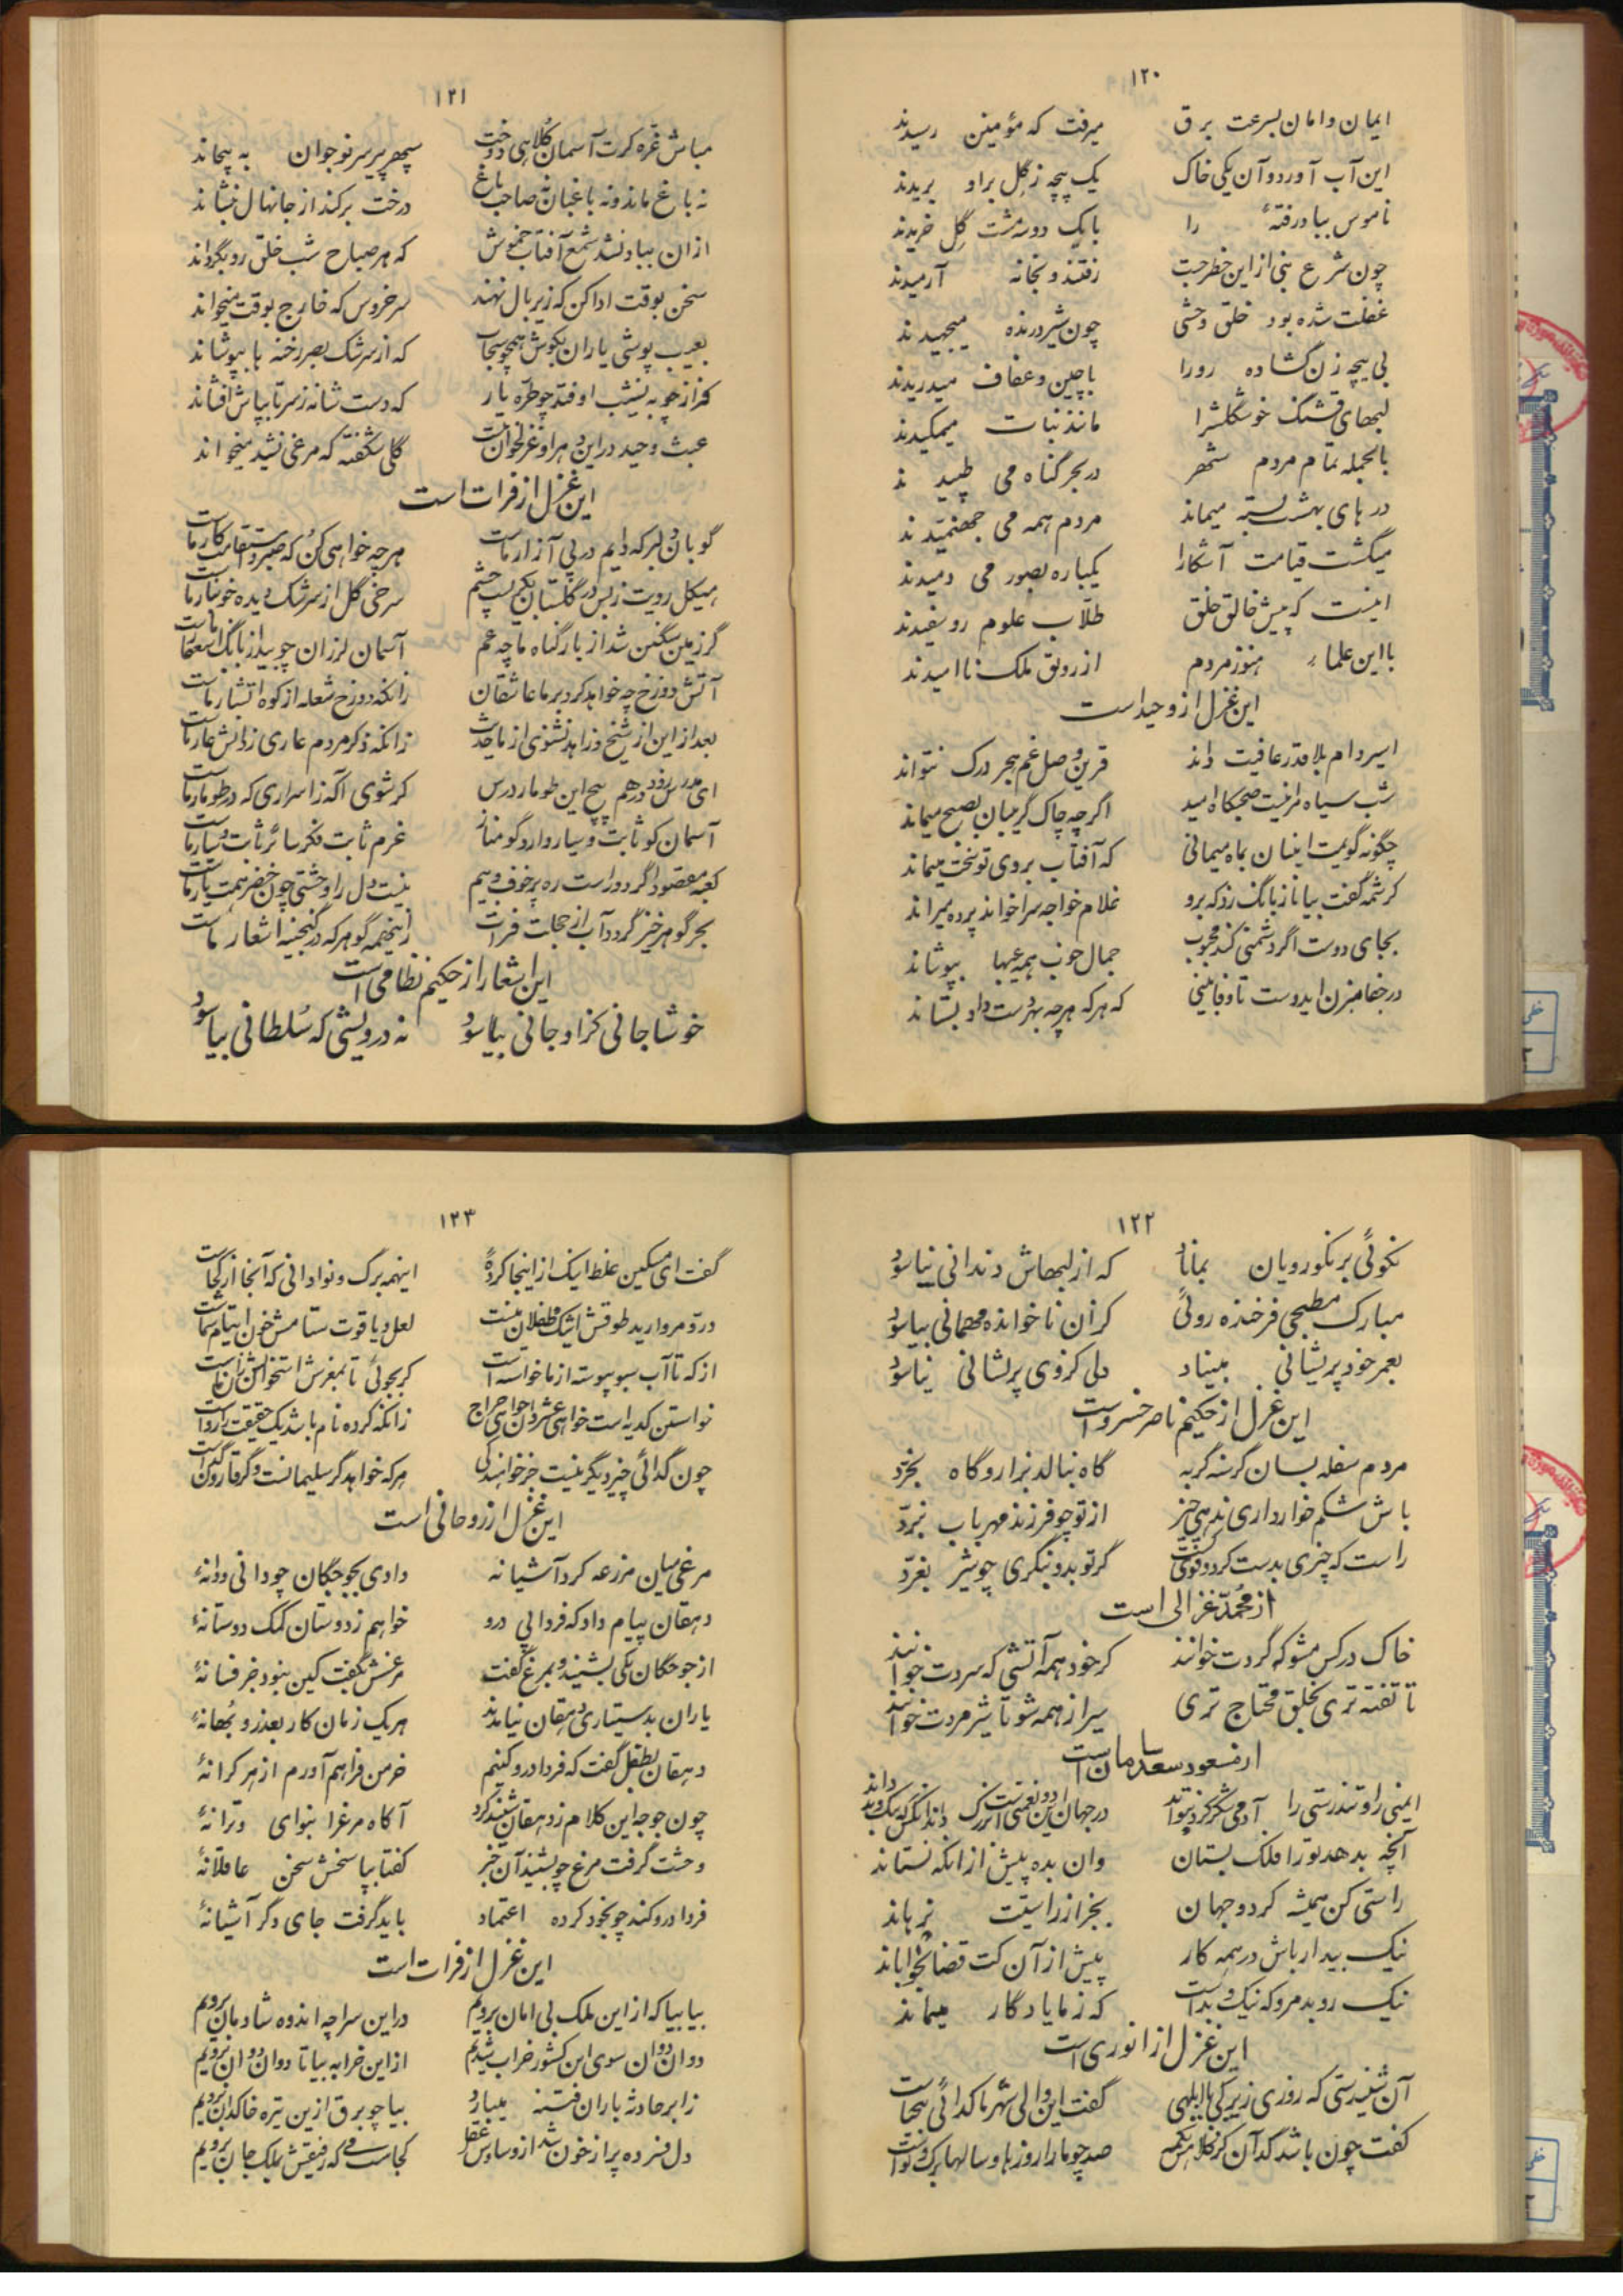 ۱۲۰
ایمان و امان بسرعت برق میرفت که مؤمنین رسیدند
این آب آورد و آن یکی خاک یک پیچه ز گل بر او بریدند
ناموس بباد رفتهٔ را با یک دو سه مشت گل خریدند
چون شرع نبی از این خطر جست رفتند و بخانه آرمیدند
غفلت شده بود خلق وحشی چون شیر درنده میجهیدند
بی پیچه زن گشاده رو را پاچین و عفاف میدریدند
لبهای قشنگ خوشگلش را مانند نبات میمکیدند
بالجمله تمام مردم شهر در بحر گناه می طپیدند
درهای بهشت بسته میماند مردم همه می جهنمیدند
میگشت قیامت آشکارا یکباره بصور می دمیدند
اینست که پیش خالق خلق طلاب علوم روسفیدند
با این علماء هنوز مردم از رونق ملک ناامیدند
این غزل از وحید است
اسیر دام بلا قدر عافیت داند قرین وصل غم هجر درک نتواند
شب سیاه مرا نیست صبحگاه امید اگر چه چاک گریبان بصبح میماند
چگونه گویمت اینسان بماه میمانی که آفتاب بروی تو سخت میماند
کرشمه گفت بیا ناز بانگ زد که برو غلام خواجه سرا خواند پرده میراند
بجای دوست اگر دشمنی کند محبوب جمال خوب همه عیبها بپوشاند
در جفا مزن ایدوست تا وفا بینی که هر که هر چه بهر دست داد بستاند
۱۲۱
مباش غره گرت آسمان کلاهی دوخت سپهر پیر سر نوجوان به پیچاند
نه باغ ماند و نه باغبان نه صاحب باغ درخت برکند از جا نهال ننشاند
از آن بباد نشد شمع آفتاب خموش که هر صباح شب خلق رو بگرداند
سخن بوقت ادا کن که زیر بال نهند سر خروس که خارج بوقت میخواند
بعیب پوشی یاران بکوش همچو سحاب که از سرشک بصر رخنه ها بپوشاند
فراز جو به نشیب اوفتد چو طره یار که دست شانه ز سر تا بپاش افشاند
عبث وحید در این دهر او غزلخوان نیست گلی شکفته که مرغی نشید میخواند
این غزل از فرات است
گو بآن دلبر که دایم در پی آزار ماست هر چه خواهی کن که صبر و استقامت کار ماست
هیکل رویت ز بس در گلستان بکم بست چشم سرخی گل از سرشک دیده خونبار ماست
گر زمین سنگین شد از بار گناه ما چه غم آسمان لرزان چو بید از بانگ استغفار ماست
آتش دوزخ چه خواهد کرد بر ما عاشقان زانکه دوزخ شعله از کوه آتشبار ماست
بعد از این از شیخ و زاهد نشنوی از ما حدیث زانکه ذکر مردم عاری ز دانش عار ماست
ای مدرس زود در هم پیچ این طومار درس گر شوی آگه ز اسراری که در طومار ماست
آسمان کو ثابت و سیار وارد گو مناز عزم ثابت فکر سائر ثابت و سیار ماست
کعبه مقصود اگر دور است ره پر خوف و بیم نیست دل را وحشتی چون خضر همت یار ماست
بحر گوهر خیز گردد آب از خجلت فرات زینهمه گوهر که در گنجینه اشعار ماست
این اشعار از حکیم نظامی است
خوشا جانی کز او جانی بیاسود نه درویشی که سلطانی بیاسود
۱۲۲
نکوئی بر نکو رویان بماناد که از لبهاش دندانی نیاسود
مبارک مطبخی فرخنده روئی کز آن ناخوانده مهمانی بیاسود
بعمر خود پریشانی مبیناد دلی کز وی پریشانی نیاسود
این غزل از حکیم ناصر خسرو است
مردم سفله بسان گرسنه گربه گاه بنالد بزار و گاه بخرد
باش شکم خوار داری ندهی چیز از تو چو فرزند مهربان نبرد
راست که چیزی بدست کرد و قوی گشت گر تو بدو بنگری چو شیر بغرد
از محمد غزالی است
خاک در کس مشو که گردت خوانند گر خود همه آتشی که سردت خوانند
تا تشنه تری بخلق محتاج تری سیر از همه شو تا شیر مردت خوانند
از مسعود سعد سلمان است
ایمنی را و تندرستی را آدمی شکر کرد نتواند در جهان این دو نعمتی است بزرگ داند آنکس که نیک و بد داند
آنچه بدهد تو را فلک بستان وان بده پیش از آنکه نستاند
راستی کن همیشه کز دو جهان بجز از راستیت نرهاند
نیک بیدار باش در همه کار پیش از آن کت قضا بخواباند
نیک رو بد مرو که نیک و بد است که ز ما یادگار میماند
این غزل از انوری است
آن شنیدستی که روزی زیرکی با ابلهی گفت این والی شهر ما گدائی بیحیاست
گفت چون باشد گدا آن کز کلاهش تکمه صد چو ما را روزها و سالها برگ و نواست
۱۲۳
گفت ای مسکین غلط اینک از اینجا کردهٔ اینهمه برگ و نوا دانی که آنجا از کجاست
در و مروارید طوقش اشک طفلان منست لعل و یاقوت ستامش خون ایتام شماست
آنکه تا آب سبو پیوسته از ما خواسته است گر بجوئی تا بمغز استخوانش زان ماست
خواستن کدیه است خواهی عشر دان خواهی خراج زانکه گر ده نام باشد یک حقیقت را رواست
چون گدائی چیز دیگر نیست جز خواهندگی هر که خواهد گر سلیمانست و گر قارون گداست
این غزل از روحانی است
مرغی میان مزرعه کرد آشیانه دادی بجوجگان چو دانی و دانهٔ
دهقان پیام داد که فردا پی درو خواهم ز دوستان کمک دوستانهٔ
از جوجگان یکی بشنید و بمرغ گفت مرغش بگفت کین نبود جز فسانهٔ
یاران بدستیاری دهقان نیامدند هر یک زمان کار بعذر و بهانهٔ
دهقان بطفل گفت که فردا درو کنیم خرمن فراهم آورم از هر کرانهٔ
چون جوجه این کلام ز دهقان شنید کرد آگاه مرغ را بنوای و ترانهٔ
وحشت گرفت مرغ چو بشنید آن خبر گفتا بپاسخش سخن عاقلانهٔ
فردا درو کند چو بخود کرده اعتماد باید گرفت جای دگر آشیانهٔ
این غزل از فرات است
بیا بیا که از این ملک بی امان برویم در این سراچه اندوه شادمان برویم
دوان دوان سوی این کشور خراب شدیم از این خرابه بیا تا دوان دوان برویم
ز ابر حادثه باران فتنه میبارد بیا چو برق از این تیره خاکدان برویم
دل فسرده پر از خون شد از وساوس عقل کجاست می که رفیقش بملک جان برویم